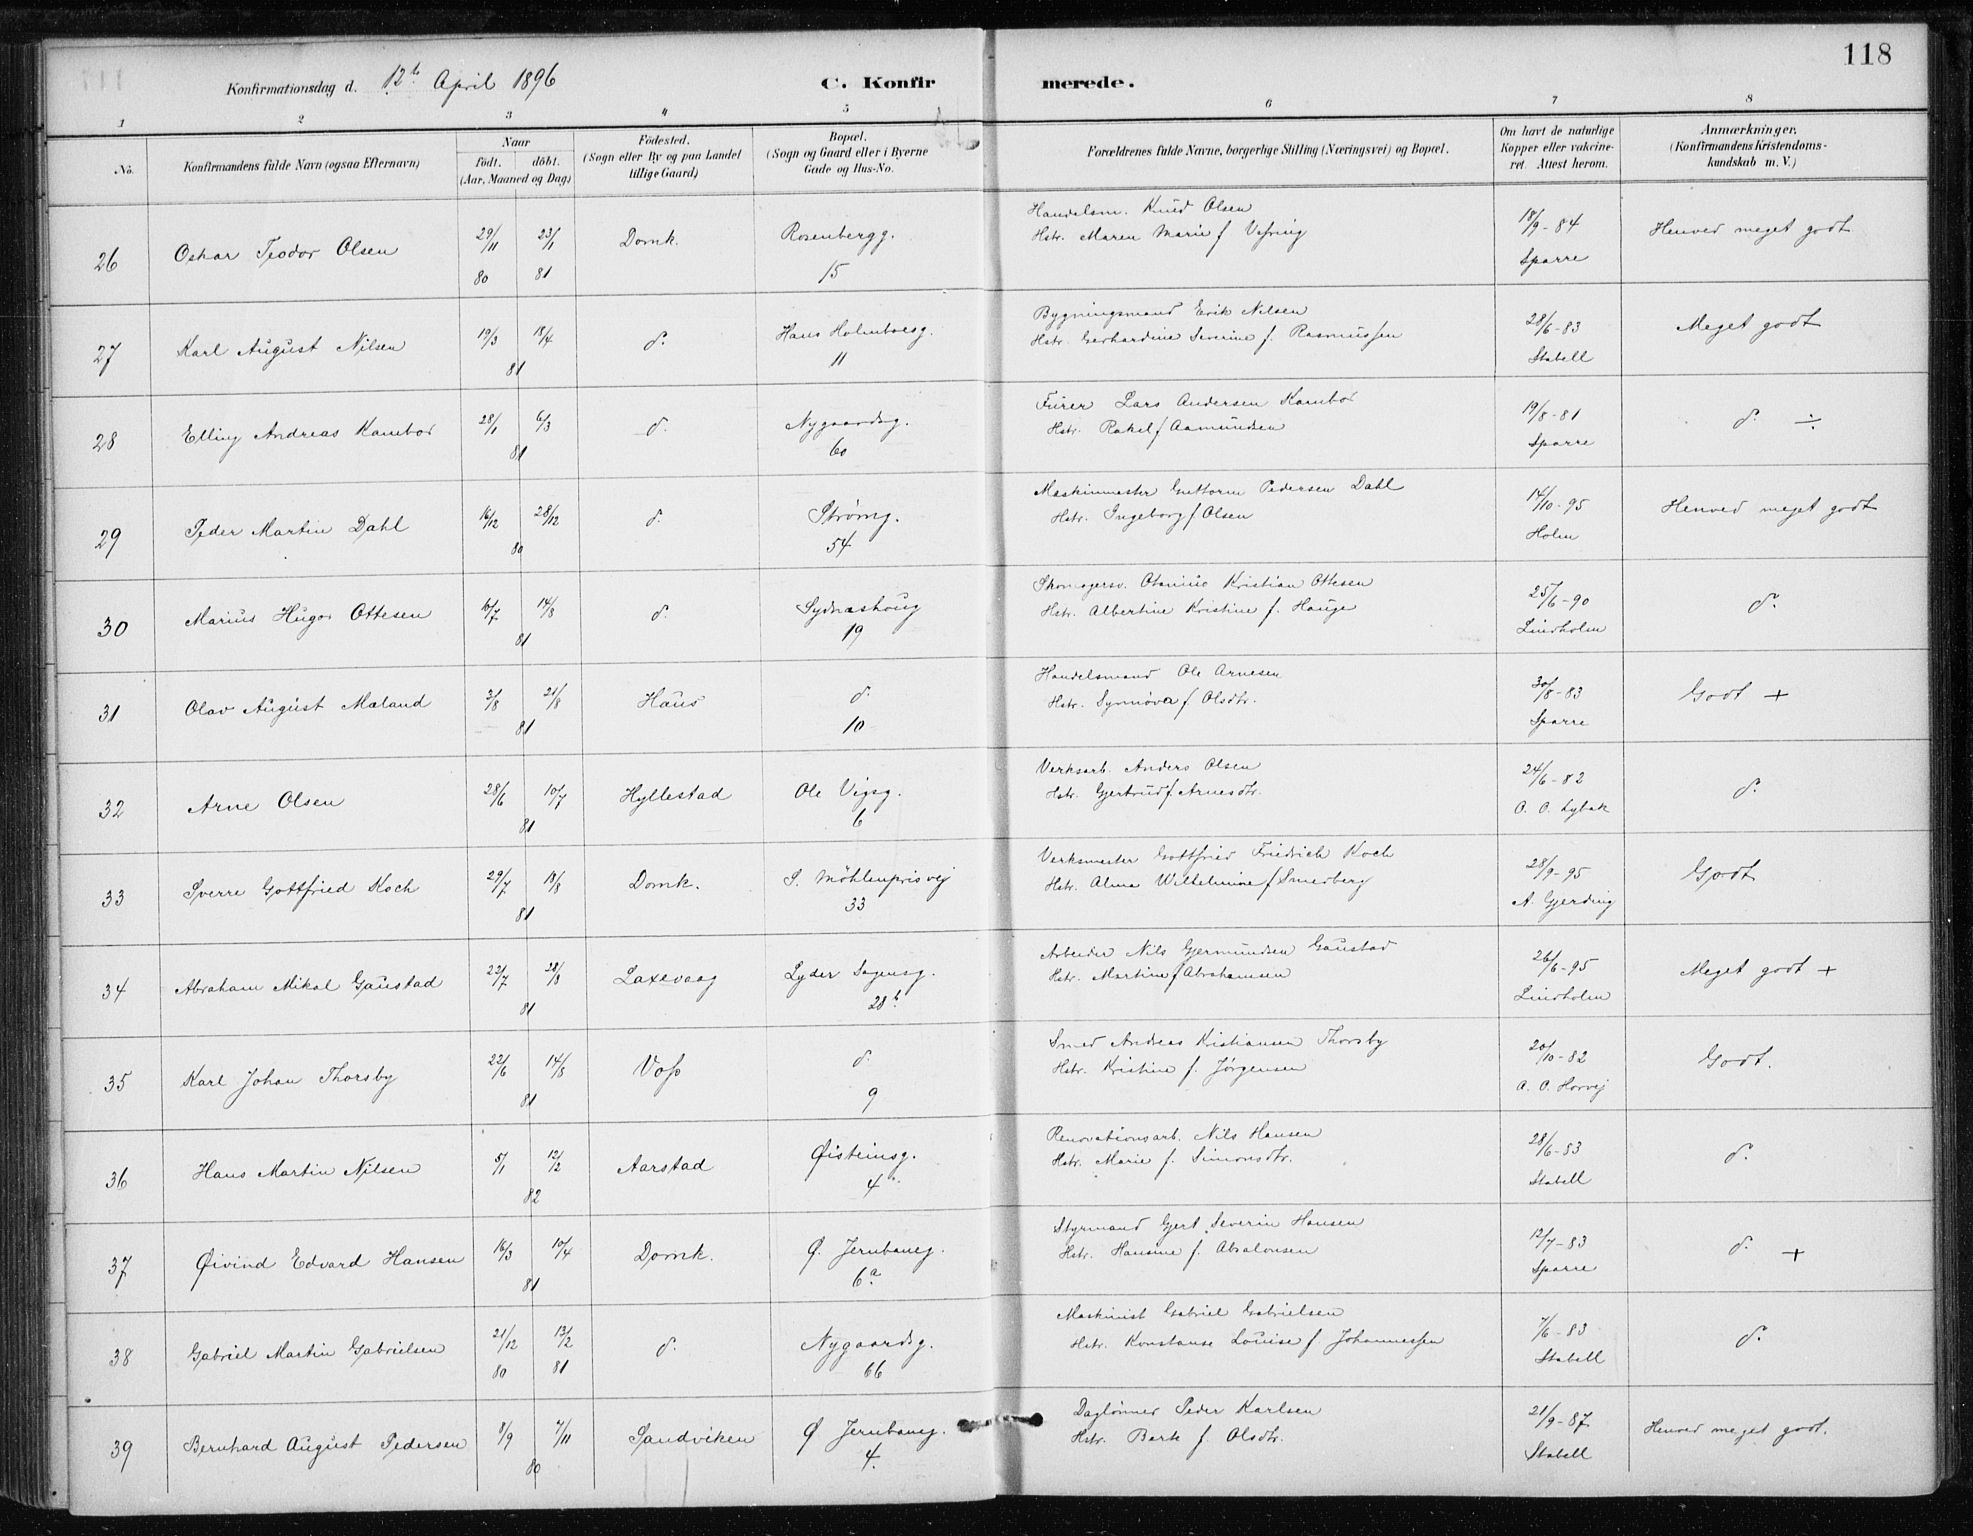 118
Konfirmationsdag d. 12te April 1896
C. Konfirmerede.
1 2 3 4 5 6 7 8
No.
Konfirmandens fulde Navn (ogsaa Efternavn)
Naar
födt. döbt.
(Aar, Maaned og Dag)
Födested.
(Sogn eller By og paa Landet
tillige Gaard)
Bopæl.
(Sogn og Gaard eller i Byerne
Gade og Hus-No.
Forældrenes fulde Navne, borgerlige Stilling (Næringsvei) og Bopæl.
Om havt de naturlige
Kopper eller vakcine-
ret. Attest herom.
Anmærkninger.
(Konfirmandens Kristendoms-
kundskab m. V.)
26 Oskar Teodor Olsen 29/11 80 23/1 81 Domk. Rosenbergg. 15
Handelsm. Knud Olsen
Hstr. Maren Marie f.
18/9-84 Sparre Henved meget godt
27 Karl August Nilsen 19/3 18/4 81 d. Hans Holmboesg. 11
Bygningsmand Erik Nilsen
Hstr. Gerhardine Severine f. Rasmussen
28/6-83 Stabell Meget godt
28 Elling Andreas Kambo 28/1 6/3 81 d. Nygaardsg. 60
Fürer Lars Andersen Kambo
Hstr. Rakel f. Aamundsen
19/8-81 Sparre d. ÷
29 Peder Martin Dahl 16/12 28/12 80 d. Strømg. 54
Maskinmester Guttorm Pedersen Dahl
Hstr. Ingeborg f. Olsen
14/10-95 Holm Henved meget godt
30 Marius Hugo Ottesen 16/7 14/8 81 d. Sydneshaug 19
Skomagersv. Kristian Ottesen
Hstr. Albertine Kristine f. Hauge
25/6-90 Lindholm d.
31 Olav August Maland 3/8 21/8 81 Haus d. 10
Handelsmand Ole Arnesen
Hstr. Synnøva f. Olsdtr.
30/8-83 Sparre Godt +
32 Arne Olsen 28/6 10/7 81 Hyllestad Ole Vigsg. 6
Verksarb. Anders Olsen
Hstr. Gjertrud f. Arnesdtr.
24/6-82 O. O. Lybæk d.
33 Sverre Gottfried Koch 29/7 81 Domk. S. Möhlenprisvej 33
Verksmester Gottfried Friedrich Koch
Hstr. Alma Wilhelmine f. Smedberg
28/9-95 A. Gjerding Godt
34 Abraham Mikal Gaustad 22/7 28/8 81 Laxevaag Lyder Sagensg. 28b
Arbeider Nils Gjermundsen Gaustad
Hstr. Martine f. Abrahamsen
26/6-95 Lindholm Meget godt +
35 Karl Johan Thorsby 22/6 14/8 81 Voss d. 9
Smed Andreas Kristiansen Thorsby
Hstr. Kristine f. Jørgensen
20/10-82 A. O. Horvej Godt.
36 Hans Martin Nilsen 5/1 12/2 82 Aarstad Øisteinsg. 4
Renovationsarb. Nils Hansen
Hstr. Marie f. Simonsdtr.
28/6-83 Stabell d.
37 Øivind Edvard Hansen 16/3 10/4 81 Domk. Ø. Jernbaneg. 6a
Styrmand Gjert Severin Hansen
Hstr. Hansine f. Absalonsen
12/7-83 Sparre d. +
38 Gabriel Martin Gabrielsen 21/12 80 13/2 81 d. Nygaardsg. 66
Maskinist Gabriel Gabrielsen
Hstr. Konstanse Louise f. Johannessen
7/6-83 Stabell d.
39 Bernhard August Pedersen 8/9 7/11 80 Sandviken Ø Jernbaneg. 4.
Daglönner Peder Karlsen
Hstr. Berte f. Olsdtr.
21/9-87 Stabell Henved meget godt.